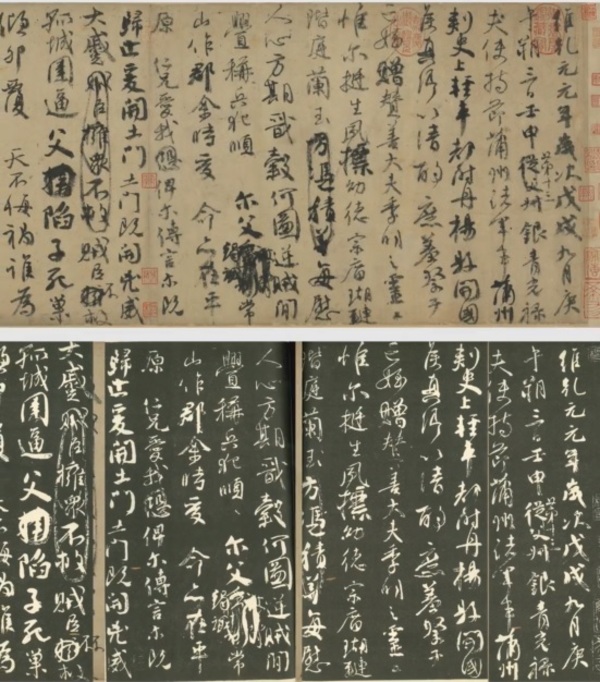 維乾元元年歲次戊戌九月庚
午朔三日壬申第十三從父叔銀青光祿
夫使持節蒲州諸軍事蒲州
刺史上輕車都尉丹楊縣開國
侯真卿以清酌庶羞祭于
亡姪贈贊善大夫季明之靈曰
惟爾挺生夙標幼德宗廟瑚璉
階庭蘭玉方憑積善每慰
人心方期戩穀何圖逆賊閒
釁稱兵犯順爾父竭誠常
山作郡余時受命亦在平
原仁兄愛我俾爾傳言爾既
歸止爰開土門土門既開凶威
大蹙賊臣擁眾不救賊臣不救
孤城圍逼父陷子死巢
傾卵覆天不悔禍誰為
維乾元元年歲次戊戌九月庚
午朔三日壬申第十三從父叔銀青光祿
夫使持節蒲州諸軍事蒲州
刺史上輕車都尉丹楊縣開國
侯真卿以清酌庶羞祭于
亡姪贈贊善大夫季明之靈曰
惟爾挺生夙標幼德宗廟瑚璉
階庭蘭玉方憑積善每慰
人心方期戩穀何圖逆賊閒
釁稱兵犯順爾父竭誠常
山作郡余時受命亦在平
原仁兄愛我俾爾傳言爾既
歸止爰開土門土門既開凶威
大蹙賊臣擁眾不救賊臣不救
孤城圍逼父陷子死巢